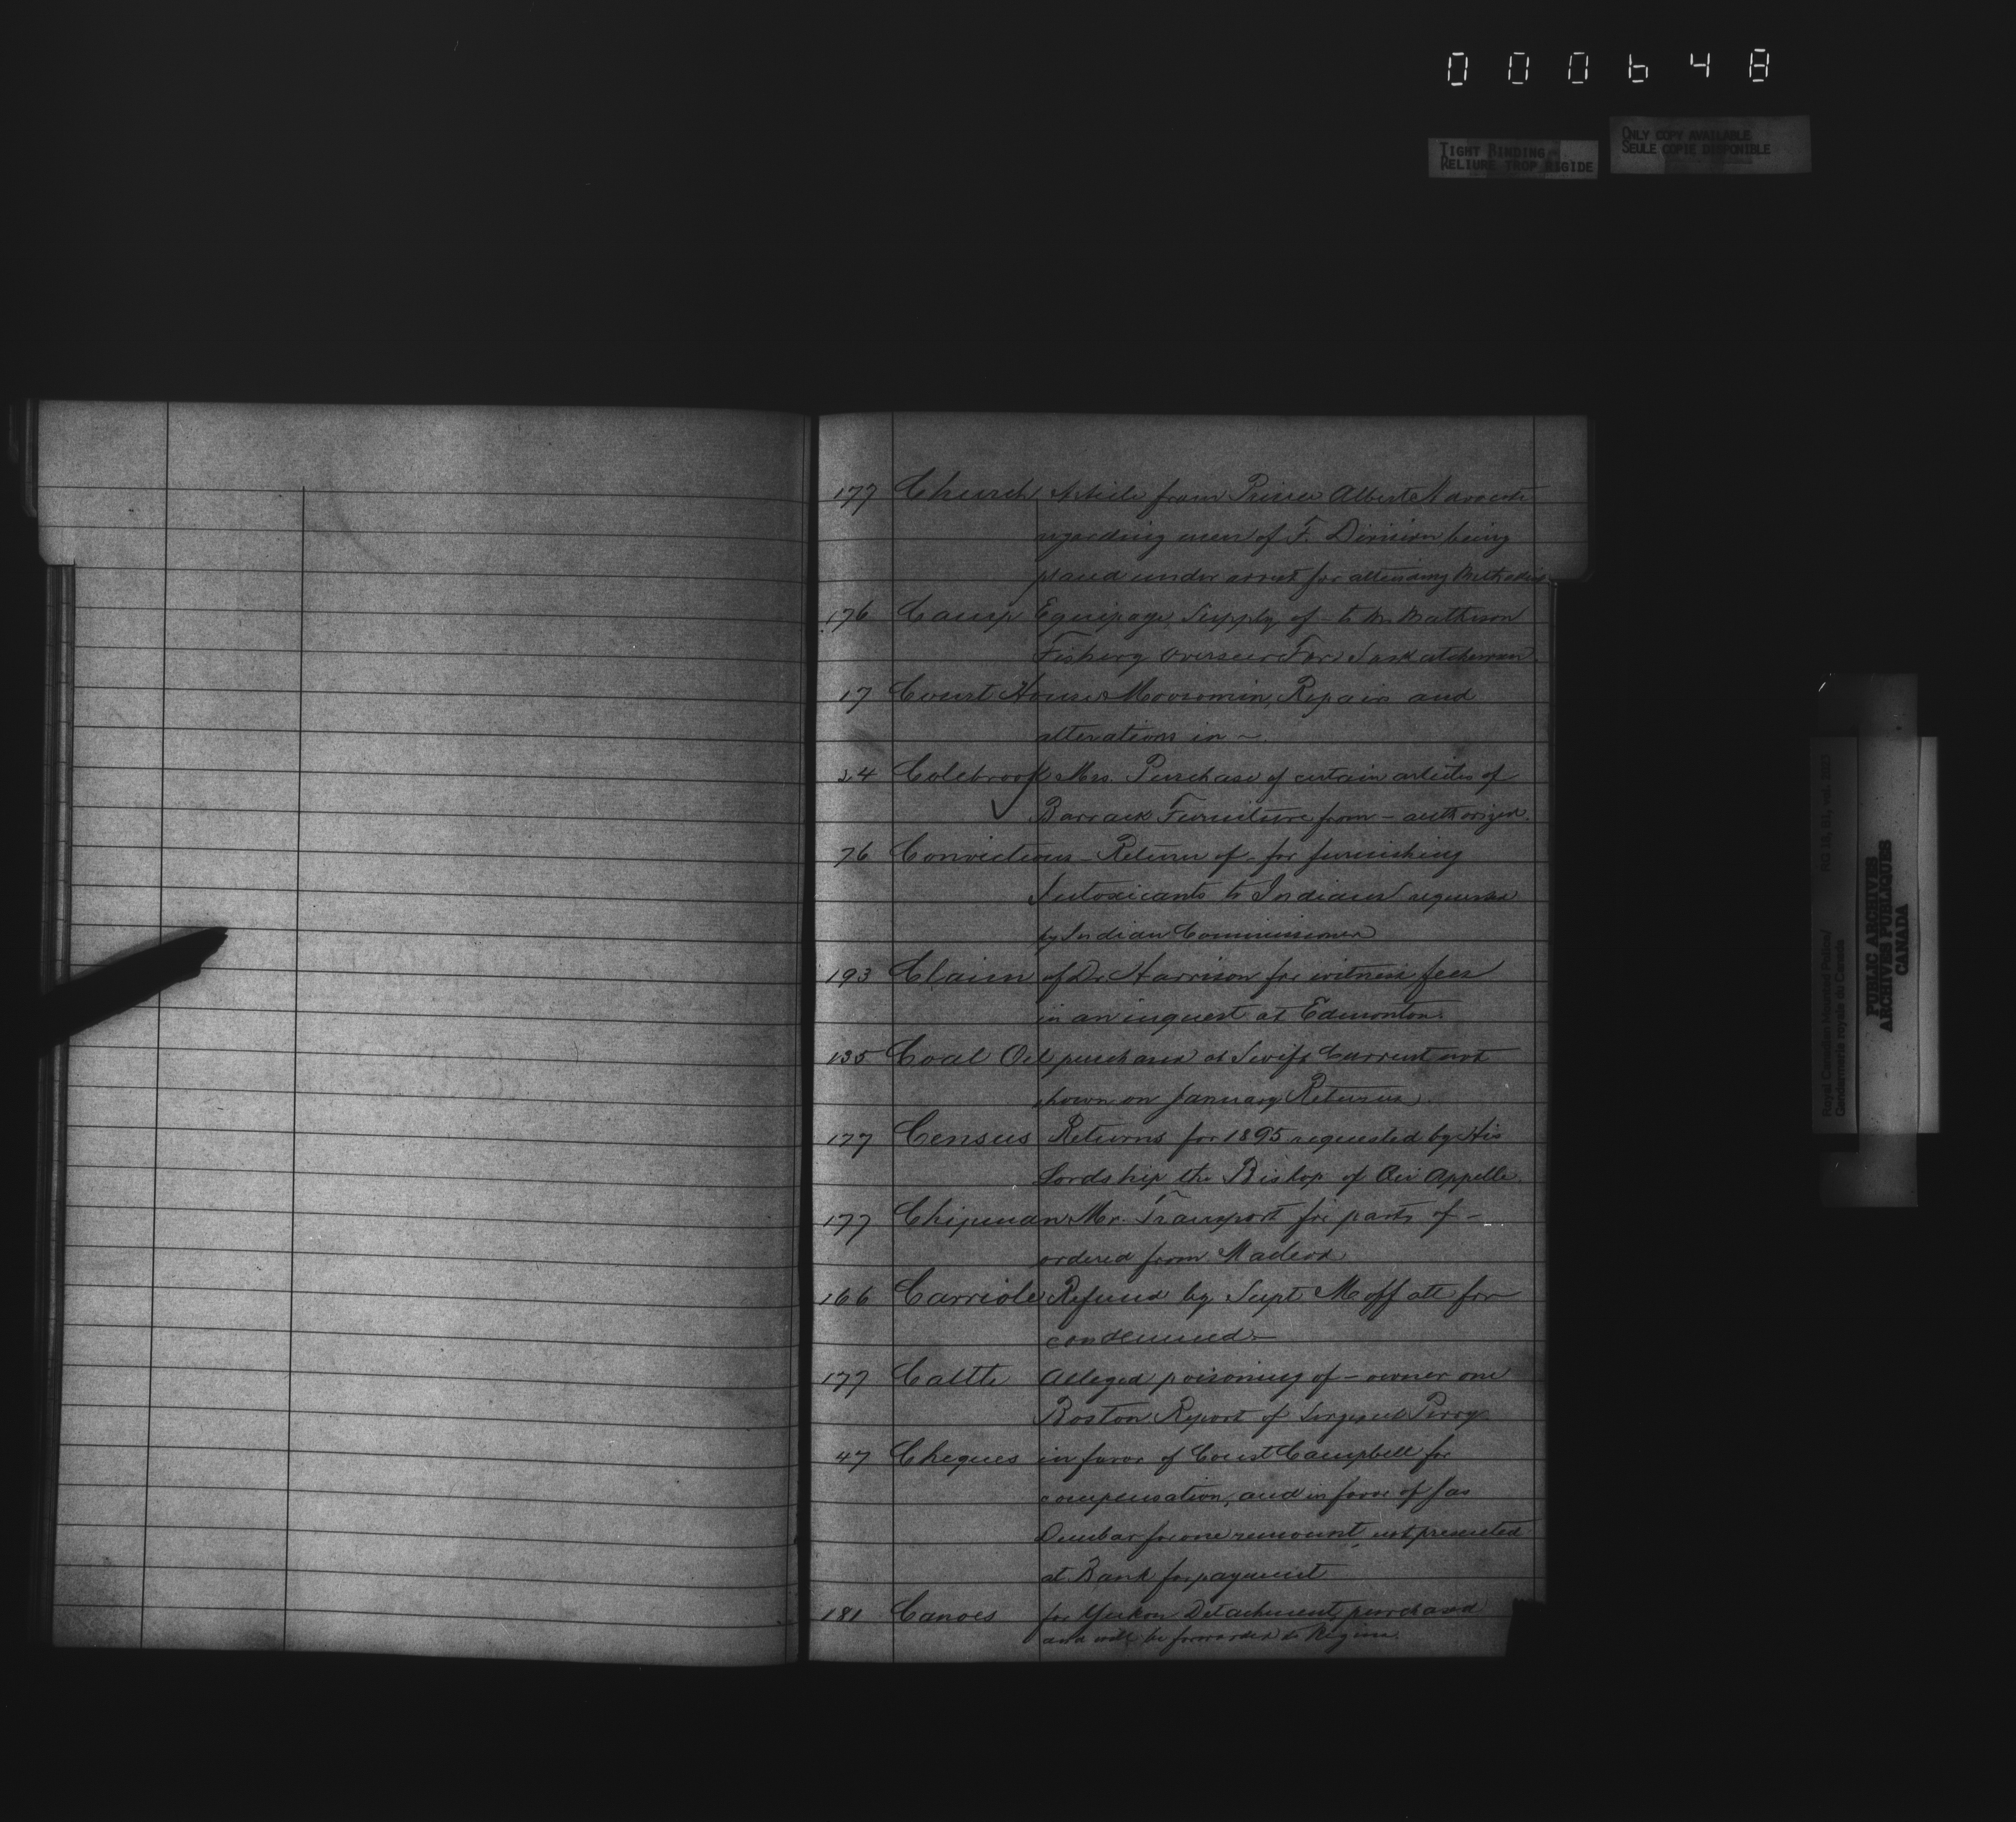 000648
TIGHT BINDING
RELIURE TROP RIGIDE
ONLY COPY AVAILABLE
SEULE COPIE DISPONIBLE
177 Church Article from Prince Albert Advocate
regarding men of F. Division being
placed under arrest for attending Methodist
176 Camp Equipage, Supply of - to Mr Matheson
Fishery Overseer Fort Saskatchewan
17 Court House Moosomin, Repairs and
alterations in ~
24 Colebrook Mrs. Purchase of certain articles of
Barrack Furniture from - authorized.
76 Convictions - Return of - for furnishing
Intoxicants to Indians required
by Indian Commissioner
193 Claim of Dr. Harrison for witness fees
in an inquest at Edmonton.
135 Coal Oil purchased at Swift Current not
shown on January Returns.
177 Census Returns for 1895 requested by His
Lordship the Bishop of Qu'Appelle.
177 Chipman Mr. Transport for party of -
ordered from Macleod
166 Carriole Refund by Supt Moffatt for
condemned -
177 Cattle Alleged poisoning of - owner one
Boston Report of Sergeant Perry
47 Cheques in favor of Const Campbell for
compensation, and in favor of Jas
Dunbar for one remount, not presented
at Bank for payment
181 Canoes for Yukon Detachment, purchased
and will be forwarded to Regina.
Royal Canadian Mounted Police/
Gendarmerie royale du Canada
PUBLIC ARCHIVES
ARCHIVES PUBLIQUES
CANADA